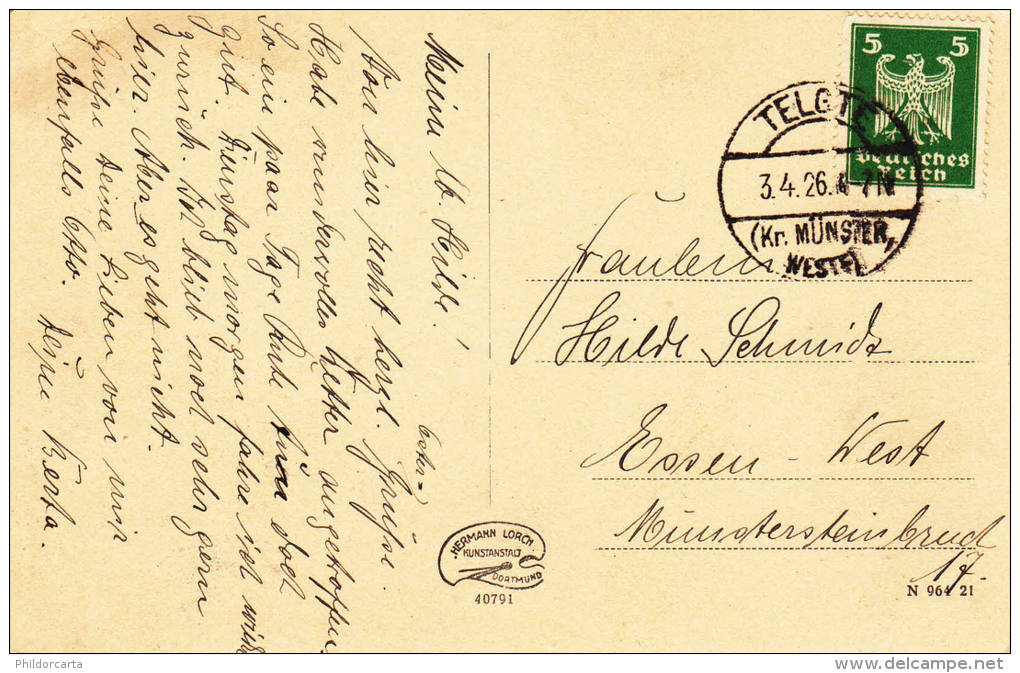 Meine lb. Hilde!
Von hier recht herzl. Grüße.
Habe wundervolles Wetter angetroffen.
So ein paar Tage Ruhe tun doch
gut. Dienstag morgen fahre ich wieder
zurück. Ich blieb noch sehr gern
hier. Aber es geht nicht.
Grüße Deine Lieben von mir
ebenfalls Otto. Deine Berta.
5 5
Deutsches
Reich
TELGTE
3.4.26. 6-7N
(Kr. MÜNSTER,
WESTF)
Fräulein
Hilde Schmidt
Essen - West
Münstersteinbruch
17.
HERMANN LORCH
KUNSTANSTALT
DORTMUND
40791
N 964 21
Phildorcarta
www.delcampe.net